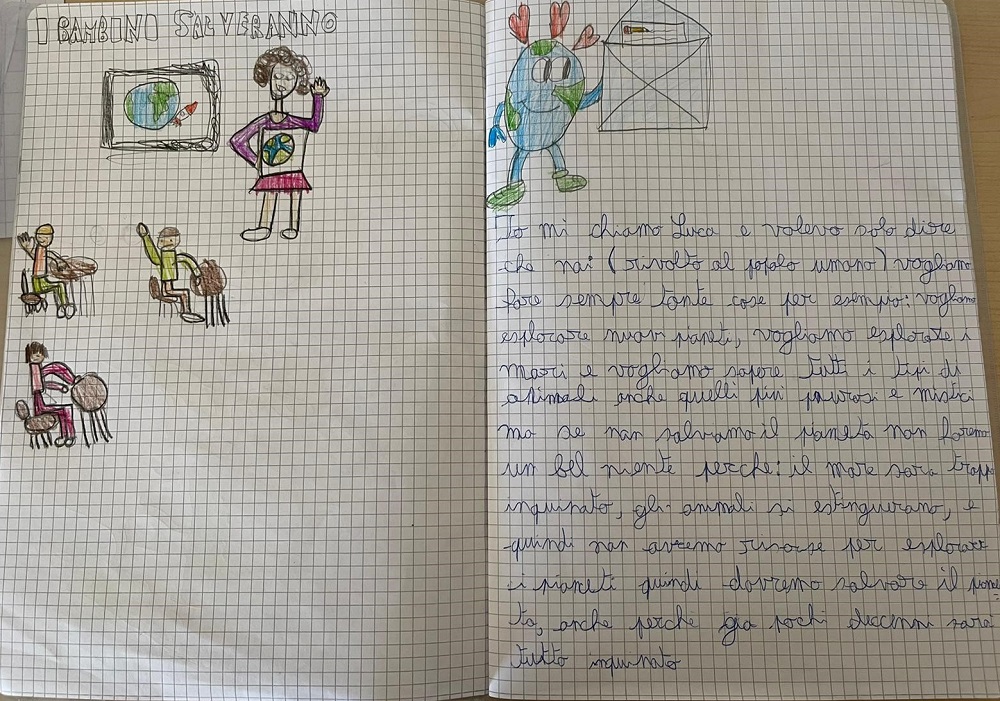 I BAMBINI SALVERANNO
Io mi chiamo Luca e volevo solo dire
che noi (rivolto al popolo umano) vogliamo
fare sempre tante cose per esempo: vogliamo
esplorare nuovi pianeti, vogliamo esplorare i
mari e vogliamo sapere tutti i tipi di
animali anche quelli più paurosi e mistici
ma se non salviamo il pianeta non faremo
un bel niente perche: il mare sara tropp
inquinato, gli animali si estinguerano, e
quindi non avremo risorse per esplorare
i pianeti quindi dovremo salvare il piane=
ta, anche perche gia pochi deccenni sarà
tutto inquinato